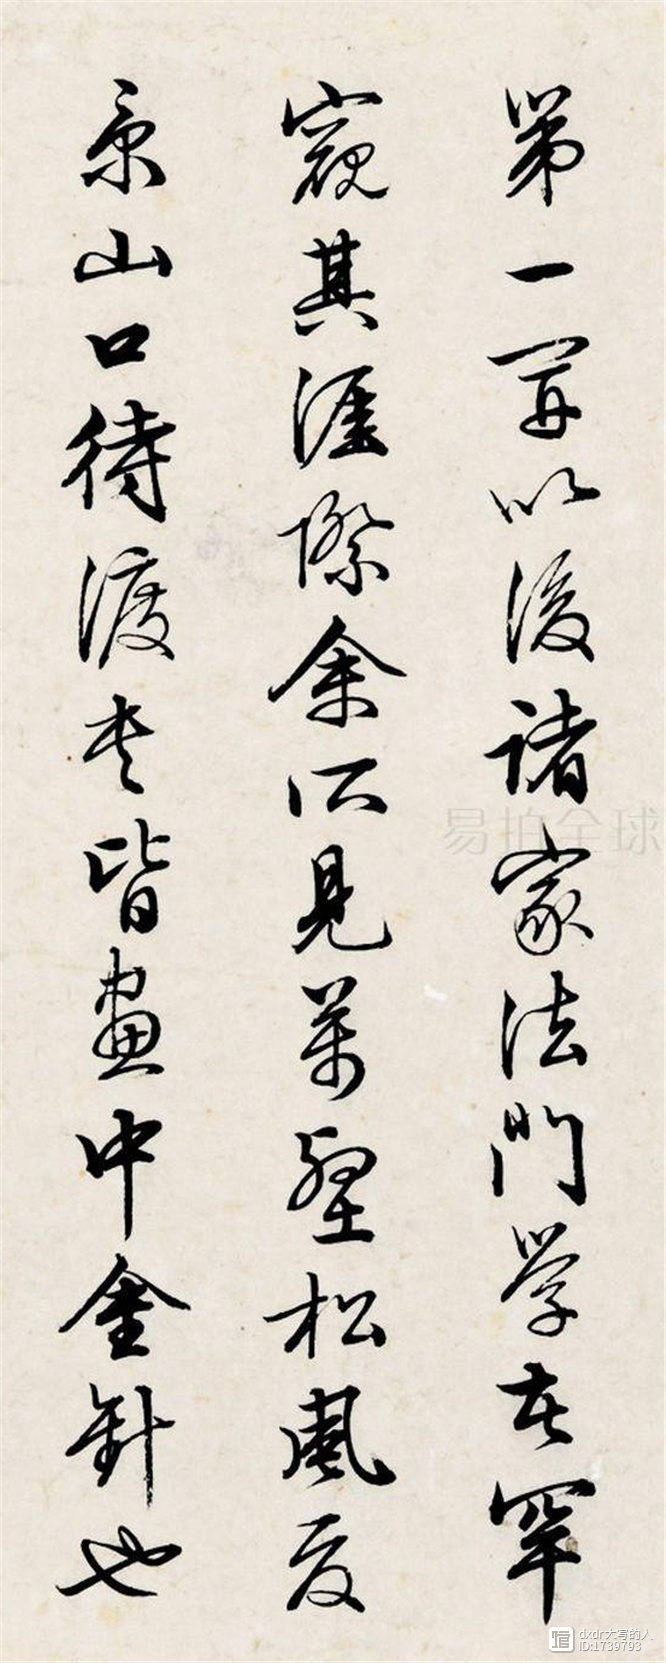 第一開以後諸家法門學者罕
窺其涯際余所見萬壑松風夏
景山口待渡者皆畫中金針也
易拍全球
dxdr大写的人
ID:1739793